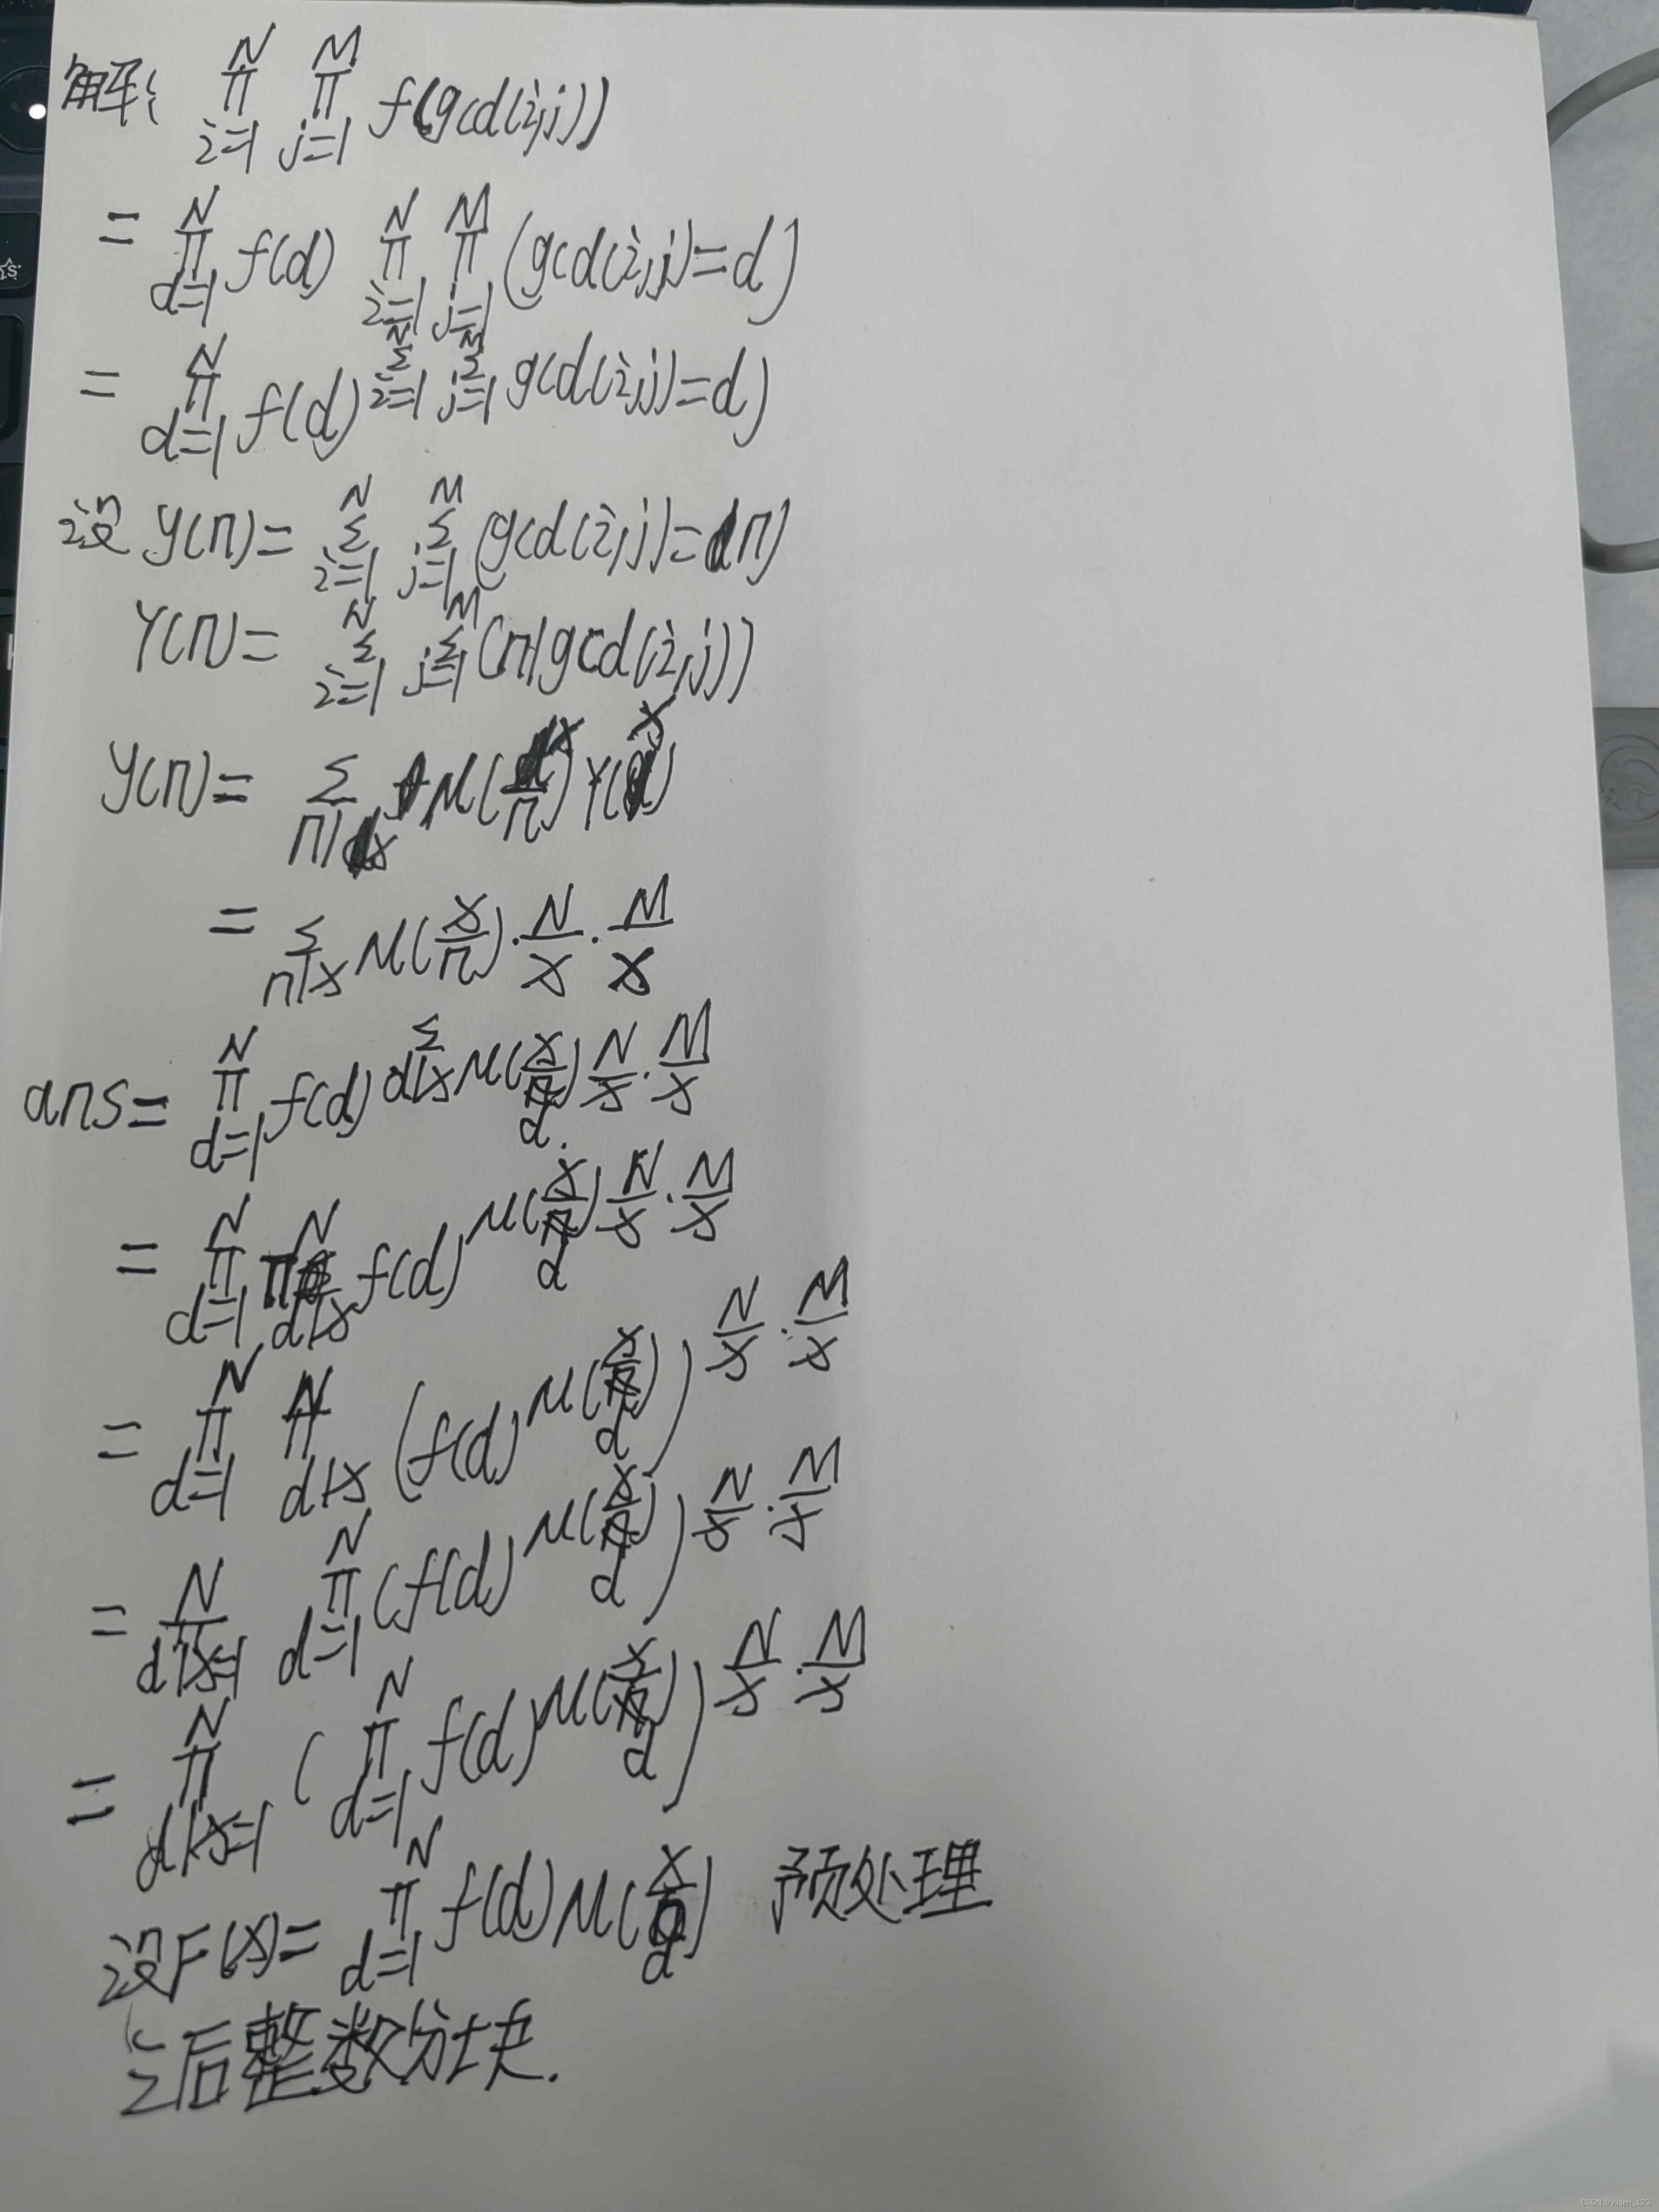 解: ∏_{i=1}^{N} ∏_{j=1}^{M} f(gcd(i,j))
= ∏_{d=1}^{N} f(d) ∏_{i=1}^{N} ∏_{j=1}^{M} (gcd(i,j)=d)
= ∏_{d=1}^{N} f(d)^{∑_{i=1}^{N} ∑_{j=1}^{M} gcd(i,j)=d)}
设 y(n)= ∑_{i=1}^{N} ∑_{j=1}^{M} (gcd(i,j)=n)
Y(n)= ∑_{i=1}^{N} ∑_{j=1}^{M} (n|gcd(i,j))
y(n)= ∑_{n|x} μ(x/n) Y(x)
= ∑_{n|x} μ(x/n)·N/x·M/x
ans= ∏_{d=1}^{N} f(d)^{∑_{d|x} μ(x/d) N/x·M/x}
= ∏_{d=1}^{N} ∏_{d|x}^{N} f(d)^{μ(x/d) N/x·M/x}
= ∏_{d=1}^{N} ∏_{d|x}^{N} (f(d)^{μ(x/d)})^{N/x·M/x}
= ∏_{d|x=1}^{N} ∏_{d=1}^{N} (f(d)^{μ(x/d)})^{N/x·M/x}
= ∏_{d|x=1}^{N} (∏_{d=1}^{N} f(d)^{μ(x/d)})^{N/x·M/x}
设F(x)= ∏_{d=1}^{N} f(d) μ(x/d) 预处理
之后整数分块.
CSDN @yusen_123